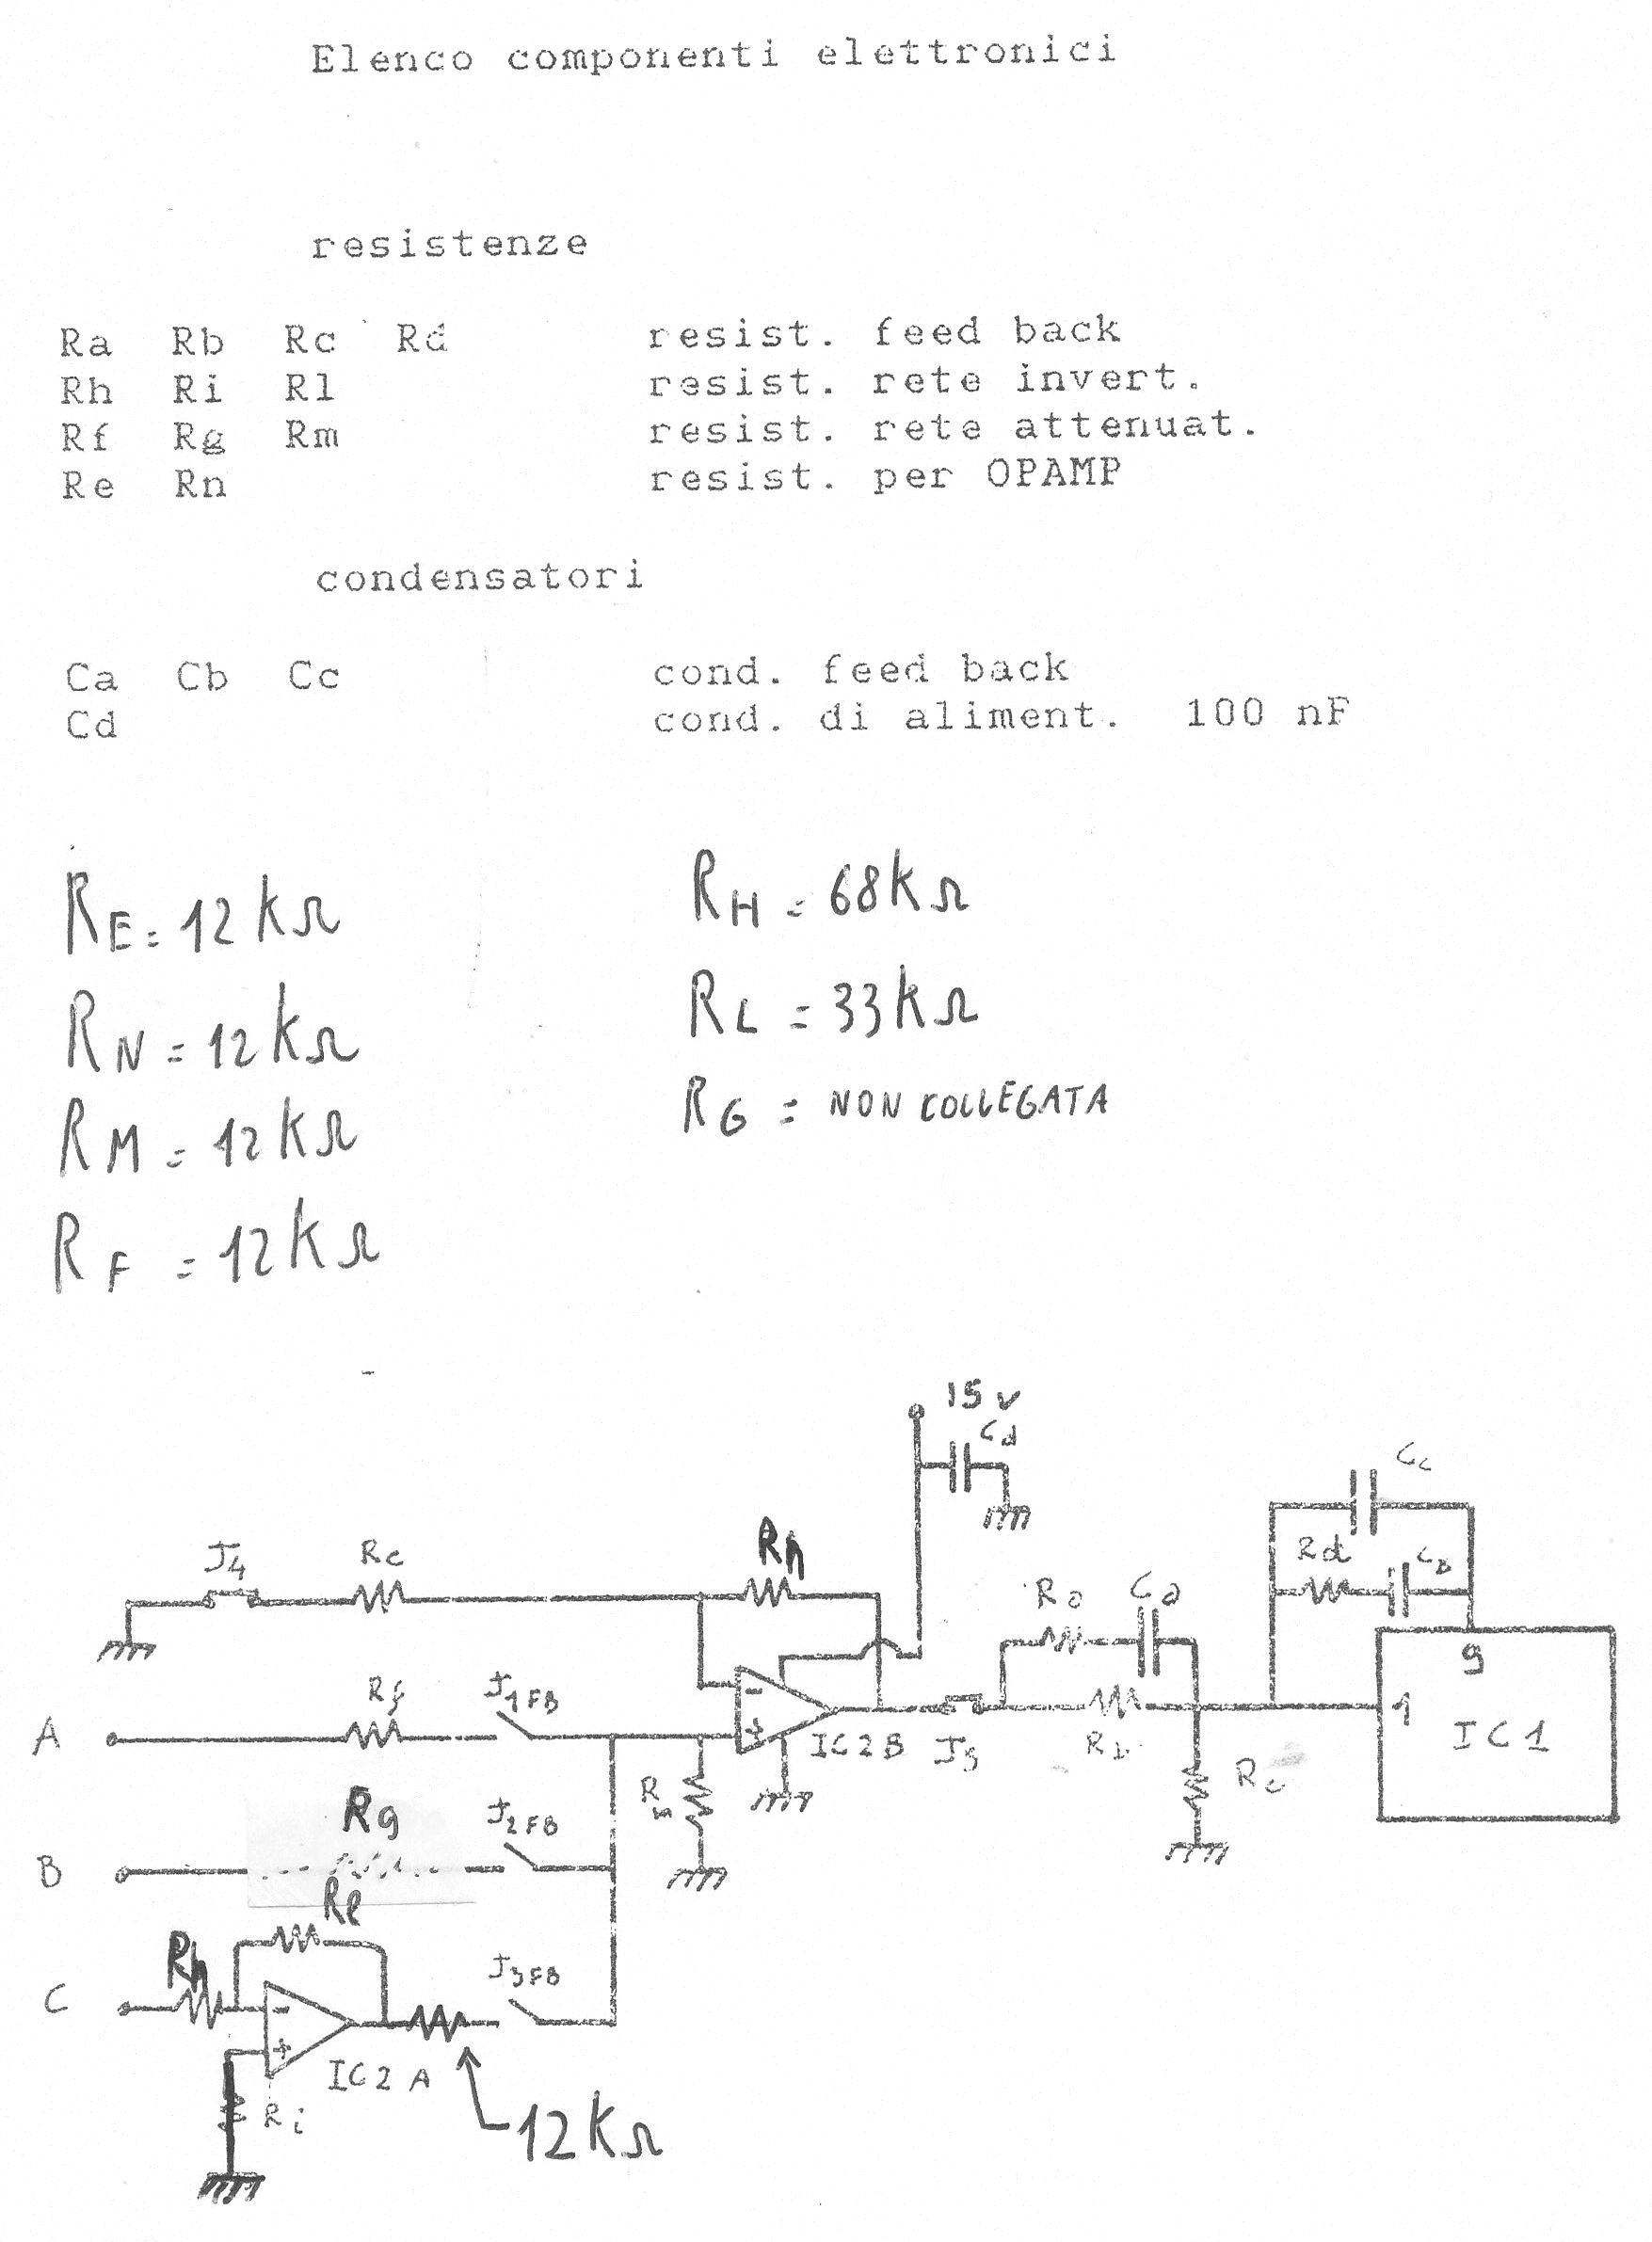 Elenco componenti elettronici
resistenze
Ra Rb Rc Rd resist. feed back
Rh Ri Rl resist. rete invert.
Rf Rg Rm resist. rete attenuat.
Re Rn resist. per OPAMP
condensatori
Ca Cb Cc cond. feed back
Cd cond. di aliment. 100 nF
RE = 12 kΩ RH = 68 kΩ
RN = 12 kΩ RL = 33 kΩ
RM = 12 kΩ RG = NON COLLEGATA
RF = 12 kΩ
15 V
Cd
Cc
J4 Re Rn
Rd Cb
Ra Ca
9
Rf J1FB
A - + IC2B J5 Rb 1 IC1
Rm Rc
Rg J2FB
B
Rl
Rh J3FB
C - + IC2A
Ri
12 kΩ